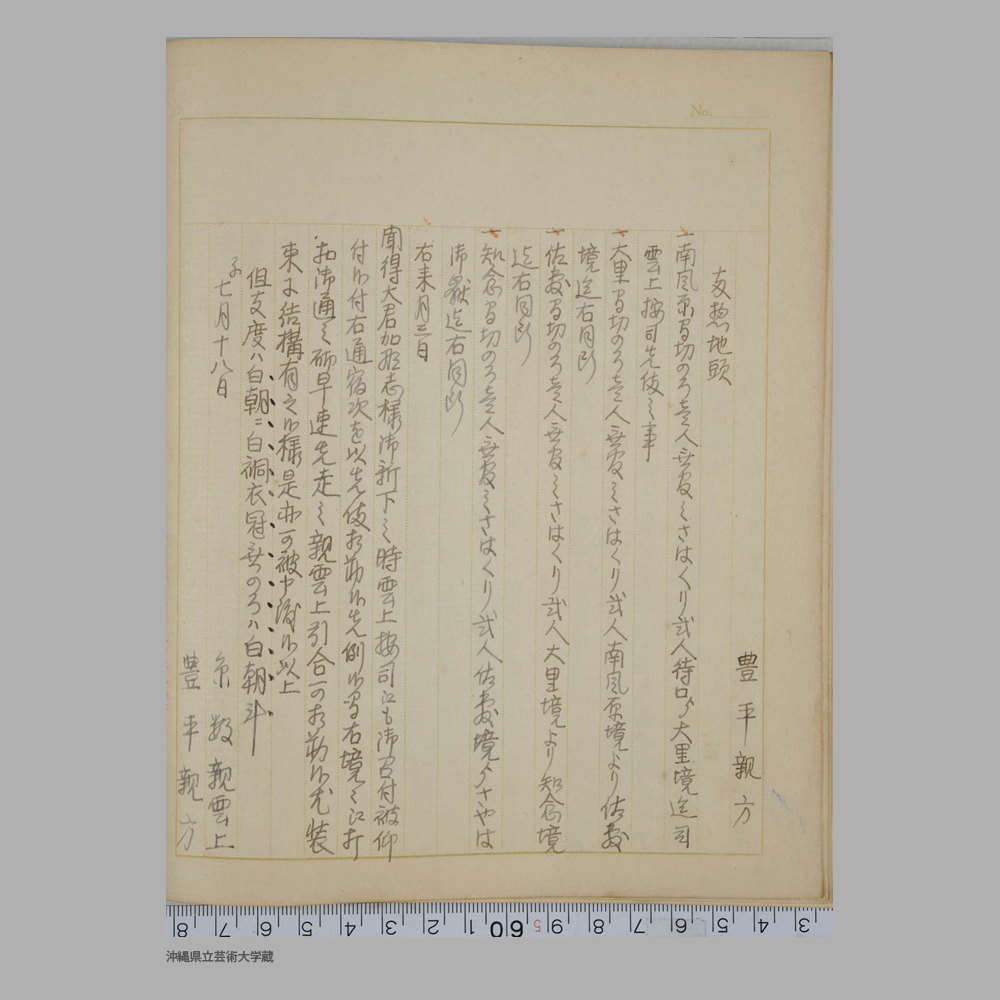 No.
豊平親方
両惣地頭
一 南風原間切のろ壱人無官ミさはくり弐人待口ゟ大里境迄司
雲上按司先伎之事
一 大里間切のろ壱人無官ミさはくり弐人南風原境より佐敷
境迄右同断
一 佐敷間切のろ壱人無官ミさはくり弐人大里境より知念境
迄右同断
一 知念間切のろ壱人無官ミさはくり弐人佐敷境ゟさやは
御嶽迄右同断
右来月三日
聞得大君加那志様御新下之時雲上按司江も御召付被仰
付候付右通宿次を以先伎相勤候先例候間右境々江打
相御通之砌早速先走之親雲上引合可相勤候尤装
束等結構有之候様是亦可被申渡候以上
但支度ハ白朝ニ白裯衣冠無のろハ白朝斗
子七月十八日
糸数親雲上
豊平親方
8 7 6 5 4 3 2 1 60 9 8 7 6 5 4 3
沖縄県立芸術大学蔵